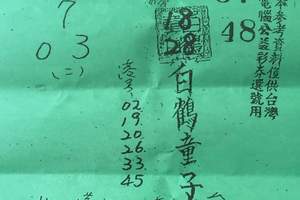 本參考資料僅供台灣
電腦公益彩券選號用
48
18
28
白鶴童子
02.
19.
20.
26.
33.
45
7
03
(二)